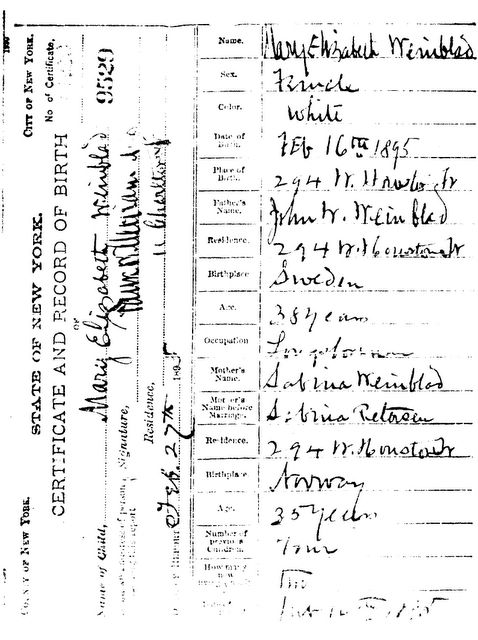 STATE OF NEW YORK.
COUNTY OF NEW YORK.
CITY OF NEW YORK.
CERTIFICATE AND RECORD OF BIRTH
OF
No of Certificate,
9529
Name of Child, Mary Elizabeth Weinblad
Signature,
Residence, 11 Charlton St
Feb. 27th 1895
Name. Mary Elizabeth Weinblad
Sex. Female
Color. White
Date of Birth. Feb 16th 1895
Place of Birth. 294 W. Houston St
Father's Name. John W. Weinblad
Residence. 294 W. Houston St
Birthplace Sweden
Age. 38 Years
Occupation Longshoreman
Mother's Name. Sabina Weinblad
Mother's Name before Marriage. Sabina Petersen
Residence. 294 W. Houston St
Birthplace. Norway
Age. 35 Years
Number of previous Children. Four
How many now
Feb 16th 1895